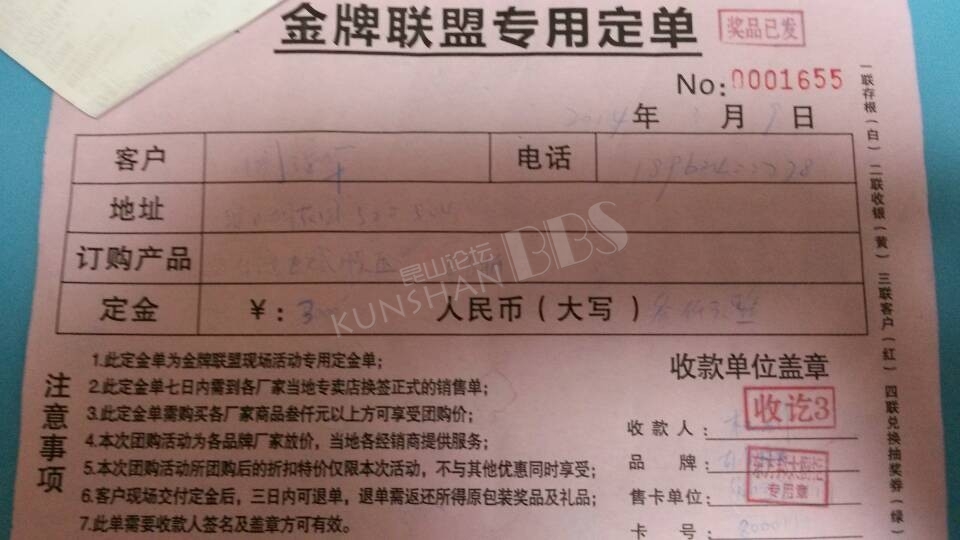 金牌联盟专用定单
奖品已发
No: 0001655
2014年3月9日
客户
电话
地址
订购产品
定金 ¥: 人民币(大写)
注意事项
1.此定金单为金牌联盟现场活动专用定金单;
2.此定金单七日内需到各厂家当地专卖店换签正式的销售单;
3.此定金单需购买各厂家商品叁仟元以上方可享受团购价;
4.本次团购活动为各品牌厂家放价,当地各经销商提供服务;
5.本次团购活动所团购后的折扣特价仅限本次活动,不与其他优惠同时享受;
6.客户现场交付定金后,三日内可退单,退单需返还所得原包装奖品及礼品;
7.此单需要收款人签名及盖章方可有效。
收款单位盖章
收款人:
收讫3
品牌:
售卡单位:
专用章
卡号:
一联存根(白) 二联收银(黄) 三联客户(红) 四联兑换抽奖券(绿
昆山论坛
KUNSHAN BBS